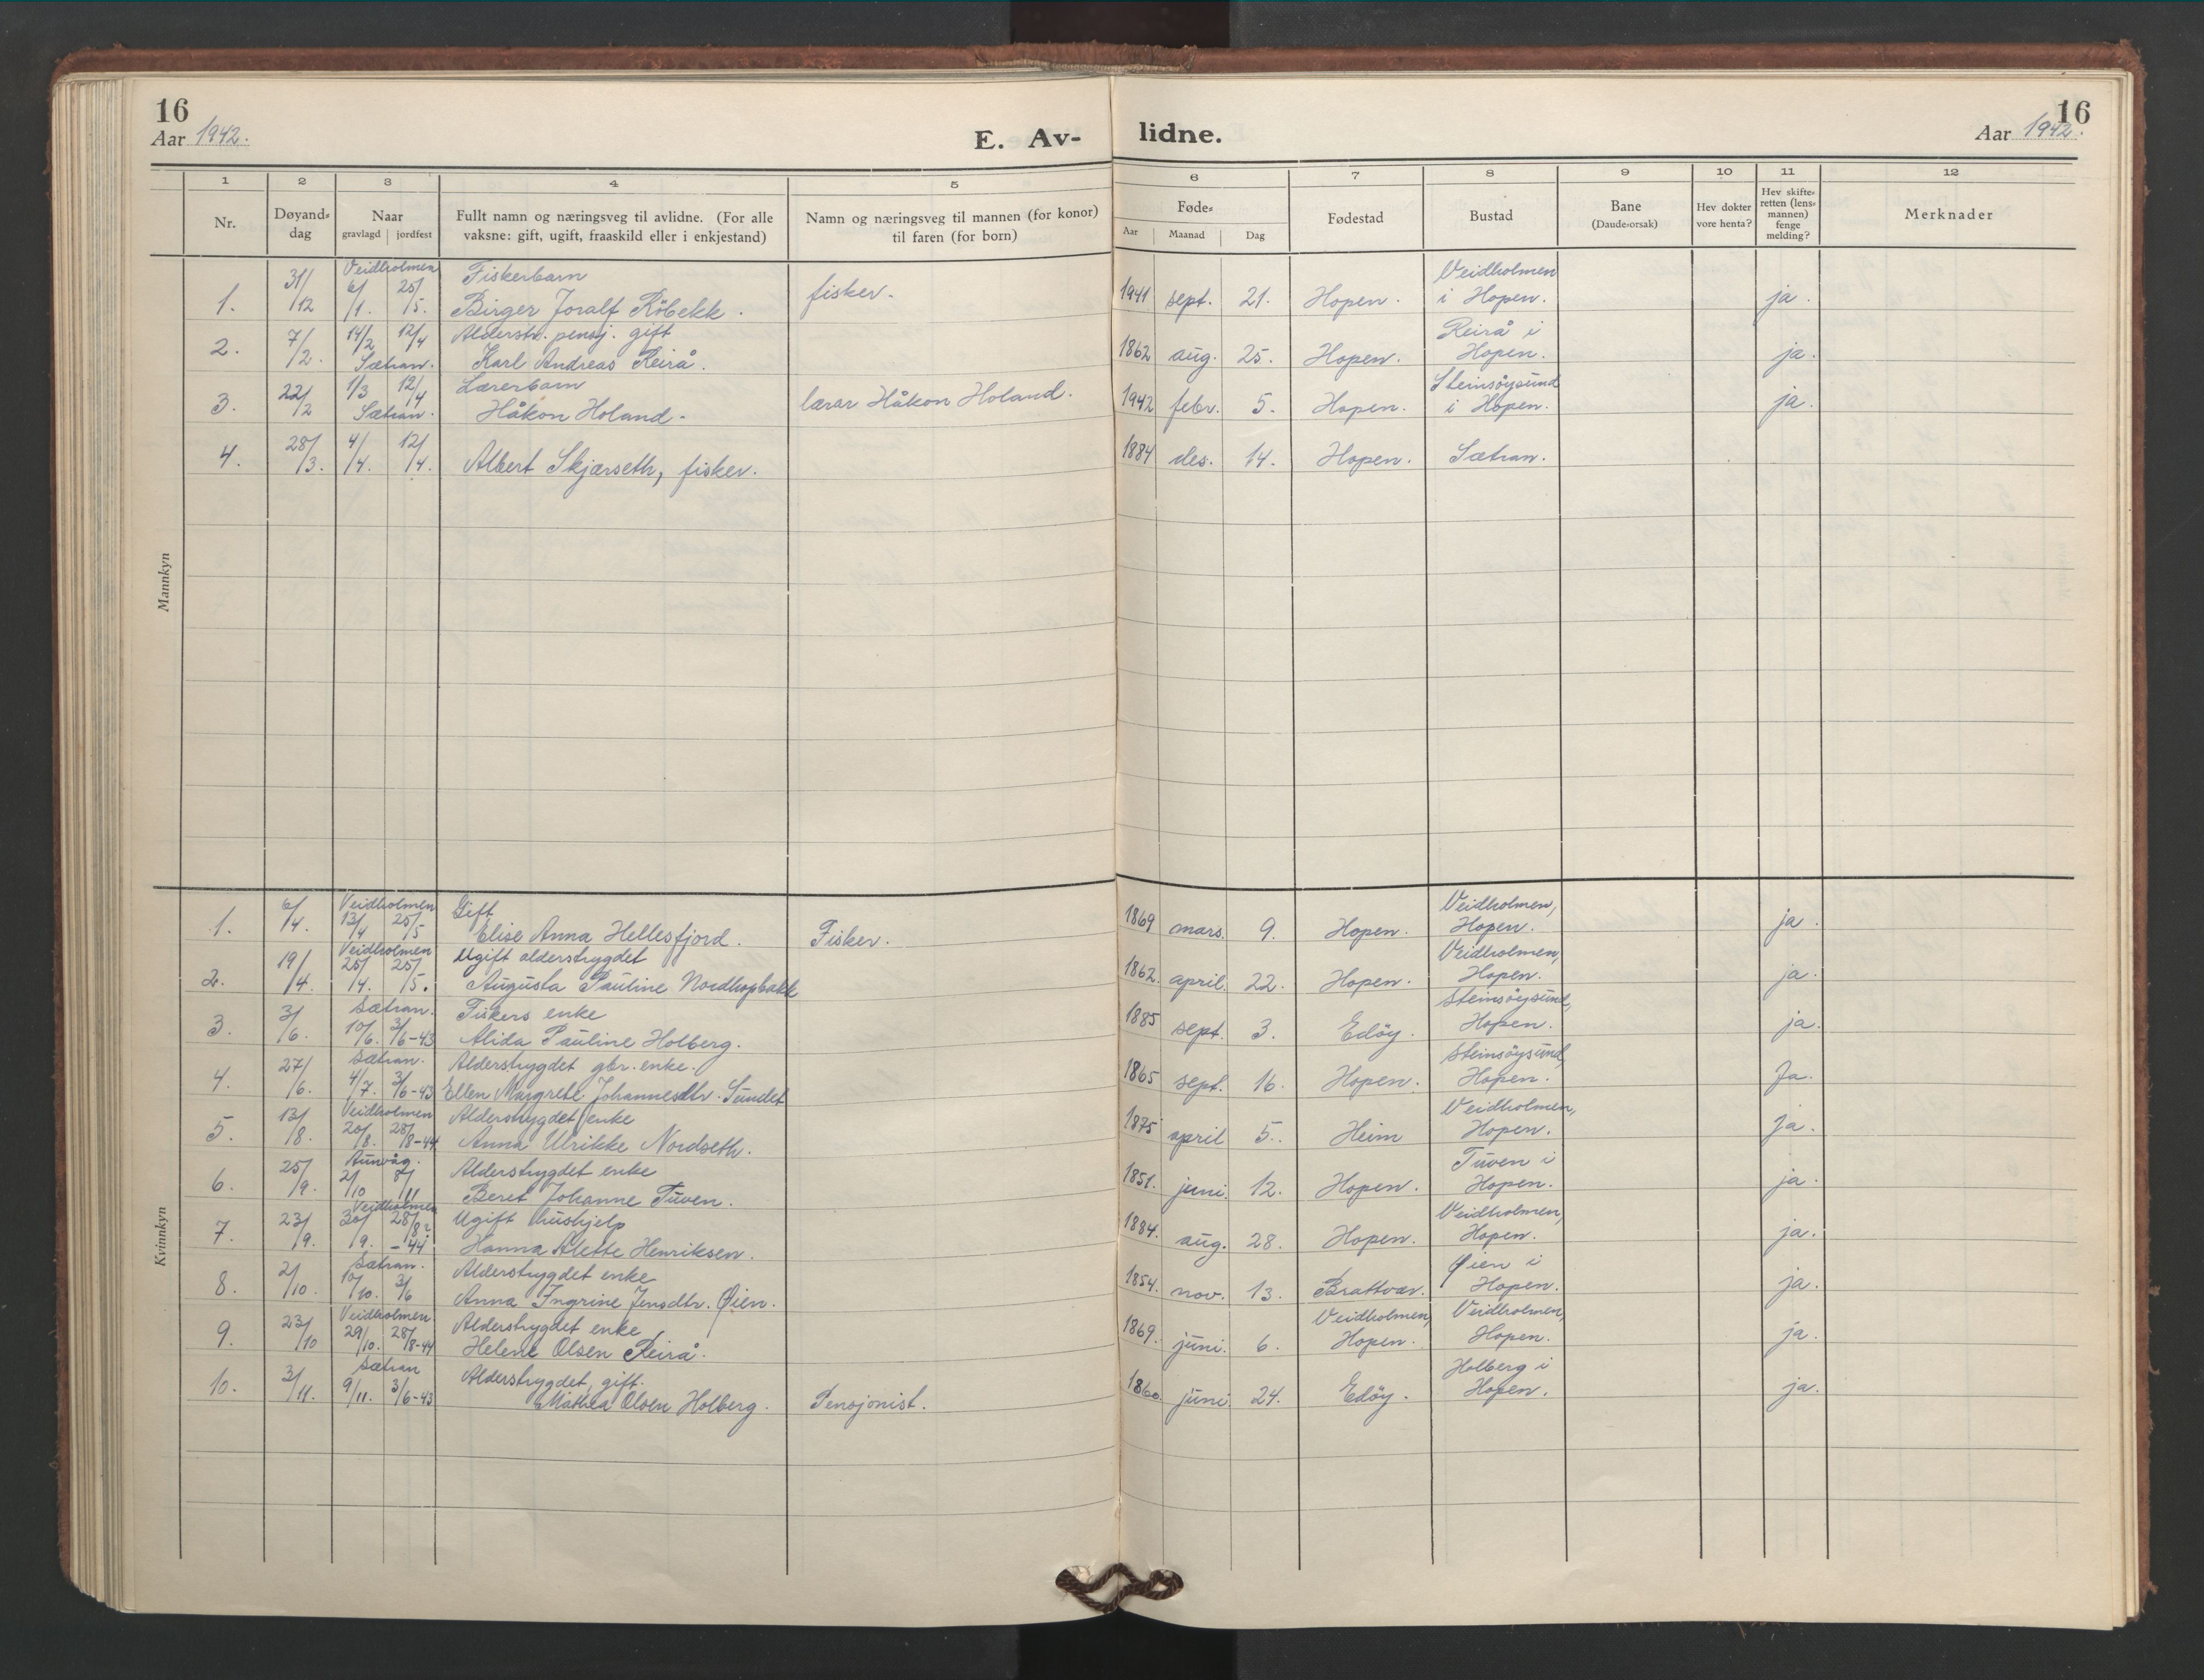 16
Aar 1942.
E. Av-
lidne.
16
Aar 1942.
1 2 3 4 5 6 7 8 9 10 11 12
Nr.
Døyand-
dag
Naar
gravlagd | jordfest
Fullt namn og næringsveg til avlidne. (For alle
vaksne: gift, ugift, fraaskild eller i enkjestand)
Namn og næringsveg til mannen (for konor)
til faren (for born)
Føde-
Aar | Maanad | Dag
Fødestad
Bustad
Bane
(Daude-orsak)
Hev dokter
vore henta?
Hev skifte-
retten (lens-
mannen)
fenge
melding?
Merknader
Mannkyn
Veidholmen Fiskerbarn Veidholmen
1. 31/12 6/1. 25/5. Birger Joralf Röbekk. fisker. 1941 sept. 21. Hopen. i Hopen. ja.
14/2 12/4 Alderstr. pensj. gift Reirå i
2. 7/2. Sætran. Karl Andreas Reirå. 1862 aug. 25. Hopen. Hopen. ja.
1/3 12/4 Lærerbarn Steinsöysund
3. 22/2 Sætran. Håkon Holand. lærar Håkon Holand. 1942 febr. 5. Hopen. i Hopen. ja.
4. 28/3. 4/4. 12/4. Albert Skjærseth, fisker. 1884 des. 14. Hopen. Sætran.
Kvinnkyn
Veidholmen Gift Veidholmen,
1. 6/4. 13/4 25/5 Elise Anna Hellesfjord. Fisker. 1869 mars. 9. Hopen. Hopen. ja.
Veidholmen Ugift alderstrygdet Veidholmen,
2. 19/4. 25/4. 25/5. Augusta Pauline Nordhopbakk 1862. april. 22. Hopen. Hopen. ja.
Sætran. Fiskers enke Steinsöysund,
3. 3/6. 10/6. 3/6-43 Alida Pauline Holberg. 1885 sept. 3. Edöy. Hopen. ja.
Sætran. Alderstrygdet gbr. enke. Steinsöysund,
4. 27/6. 4/7. 3/6-43 Ellen Margrete Johannesdtr. Sundet 1865 sept. 16. Hopen. Hopen. Ja.
Veidholmen Alderstrygdet enke Veidholmen,
5. 13/8. 20/8. 28/8-44 Anna Ulrikke Nordseth. 1875 april 5. Heim Hopen. Ja.
Aunvåg. Alderstrygdet enke Tuven i
6. 25/9. 2/10 8/11 Beret Johanne Tuven. 1851. juni. 12. Hopen. Hopen. ja.
Veidholmen Ugift hushjelp Veidholmen,
7. 23/9. 30/9. 28/8-44 Hanna Alette Henriksen. 1884. aug. 28. Hopen. Hopen. ja.
Sætran. Alderstrygdet enke Øien i
8. 2/10. 10/10. 3/6 Anna Ingrine Jensdtr. Øien. 1854. nov. 13. Brattvær. Hopen. ja.
Veidholmen. Alderstrygdet enke Veidholmen, Veidholmen,
9. 23/10 29/10. 28/8-44 Helene Olsen Reirå. 1869. juni. 6. Hopen. Hopen. ja.
Sætran Alderstrygdet, gift. Holberg i
10. 3/11. 9/11. 3/6-43 Mathea Olsen Holberg. Pensjonist. 1860. juni 24. Edöy. Hopen. ja.